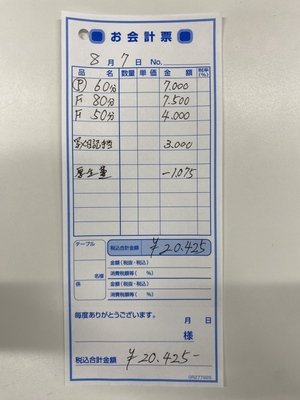 お会計票
8月7日 No.
品名 数量 単価 金額 税率(%)
Ⓟ 60分 7.000
F 80分 7.500
F 50分 4.000
写メ日記手当 3.000
厚生費 -1.075
テーブル 税込合計金額 ¥20.425
金額(税抜・税込)
名様 消費税額等( %)
係 金額(税抜・税込)
消費税額等( %)
毎度ありがとうございます。 月 日
様
税込合計金額 ¥20.425-